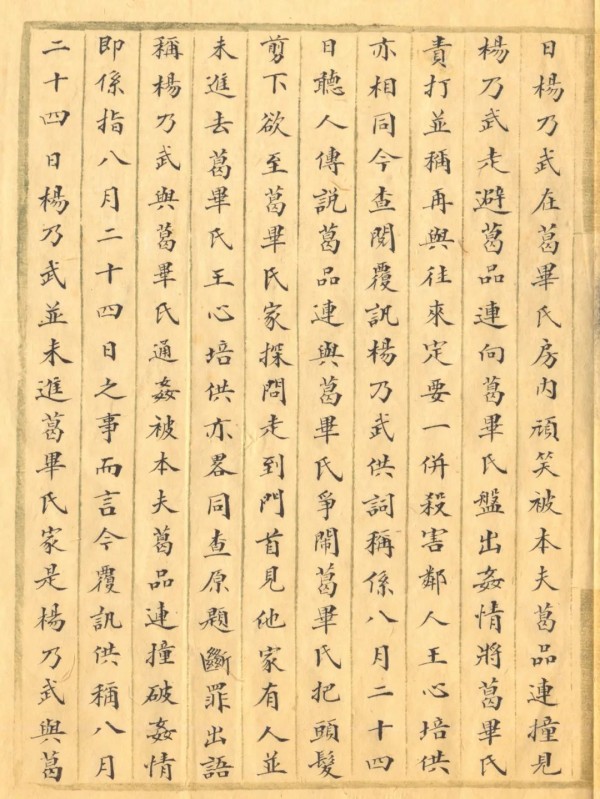 日楊乃武在葛畢氏房内頑笑被本夫葛品連撞見
楊乃武走避葛品連向葛畢氏盤出姦情將葛畢氏
責打並稱再與往來定要一併殺害鄰人王心培供
亦相同今查閱覆訊楊乃武供詞稱係八月二十四
日聽人傳説葛品連與葛畢氏爭鬧葛畢氏把頭髮
剪下欲至葛畢氏家探問走到門首見他家有人並
未進去葛畢氏王心培供亦畧同查原題斷罪出語
稱楊乃武與葛畢氏通姦被本夫葛品連撞破姦情
即係指八月二十四日之事而言今覆訊供稱八月
二十四日楊乃武並未進葛畢氏家是楊乃武與葛